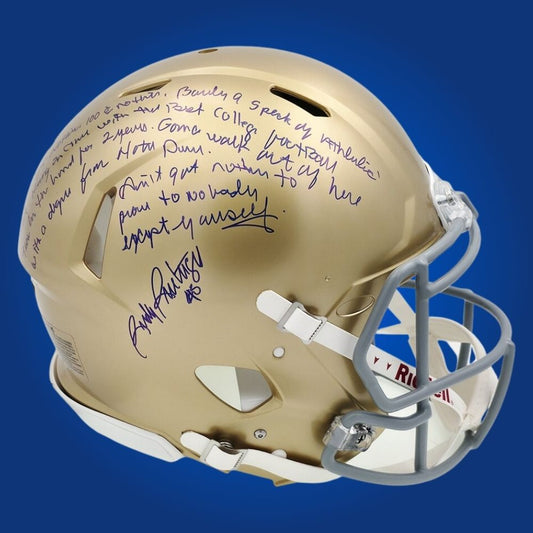 100 & nothin. Barely a speck of athletic
in there with the best college football
for 2 years. Gonna walk out of here
with a degree from Notre Dame.
Ain't got nothin to
prove to nobody
except yourself.
Riddell